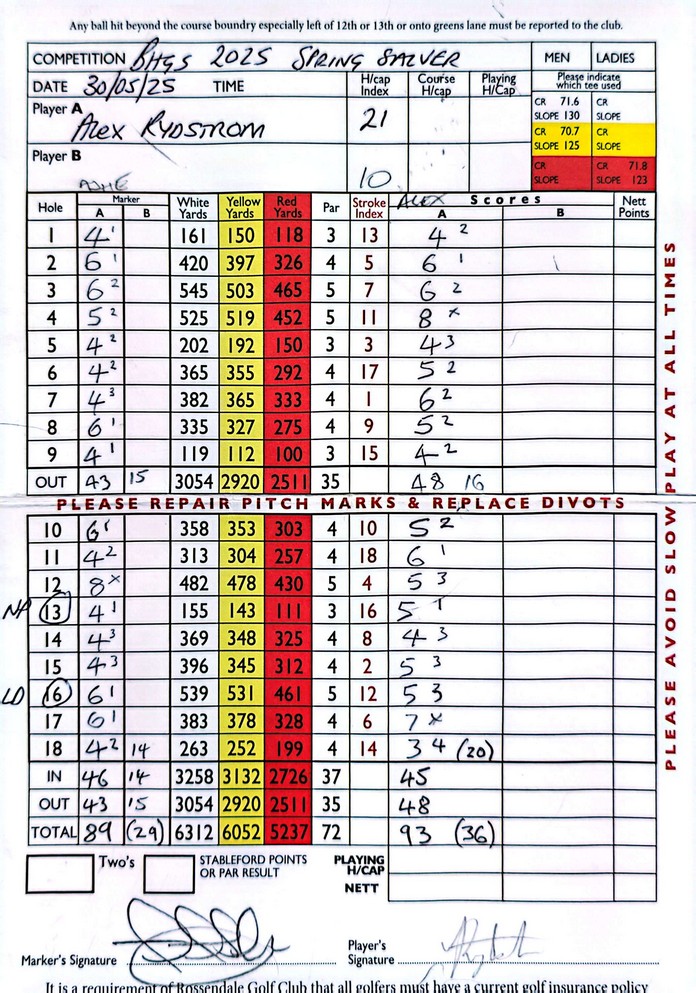 Any ball hit beyond the course boundry especially left of 12th or 13th or onto greens lane must be reported to the club.
COMPETITION BHGS 2025 SPRING SALVER MEN LADIES
DATE 30/05/25 TIME H/cap Index Course H/cap Playing H/Cap Please indicate which tee used
Player A Alex RYDSTROM 21 CR 71.6 SLOPE 130 CR SLOPE
CR 70.7 SLOPE 125 CR SLOPE
Player B 10 CR SLOPE CR 71.8 SLOPE 123
Hole Marker A B White Yards Yellow Yards Red Yards Par Stroke Index ALEX Scores A B Nett Points
1 4 1 161 150 118 3 13 4 2
2 6 1 420 397 326 4 5 6 1
3 6 2 545 503 465 5 7 6 2
4 5 2 525 519 452 5 11 8 x
5 4 2 202 192 150 3 3 4 3
6 4 2 365 355 292 4 17 5 2
7 4 3 382 365 333 4 1 6 2
8 6 1 335 327 275 4 9 5 2
9 4 1 119 112 100 3 15 4 2
OUT 43 15 3054 2920 2511 35 48 16
PLEASE REPAIR PITCH MARKS & REPLACE DIVOTS
10 6 1 358 353 303 4 10 5 2
11 4 2 313 304 257 4 18 6 1
12 8 x 482 478 430 5 4 5 3
NP 13 4 1 155 143 111 3 16 5 1
14 4 3 369 348 325 4 8 4 3
15 4 3 396 345 312 4 2 5 3
LD 16 6 1 539 531 461 5 12 5 3
17 6 1 383 378 328 4 6 7 x
18 4 2 14 263 252 199 4 14 3 4 (20)
IN 46 14 3258 3132 2726 37 45
OUT 43 15 3054 2920 2511 35 48
TOTAL 89 (29) 6312 6052 5237 72 93 (36)
Two's STABLEFORD POINTS OR PAR RESULT PLAYING H/CAP
NETT
Marker's Signature Player's Signature
It is a requirement of Rossendale Golf Club that all golfers must have a current golf insurance policy
PLEASE AVOID SLOW PLAY AT ALL TIMES